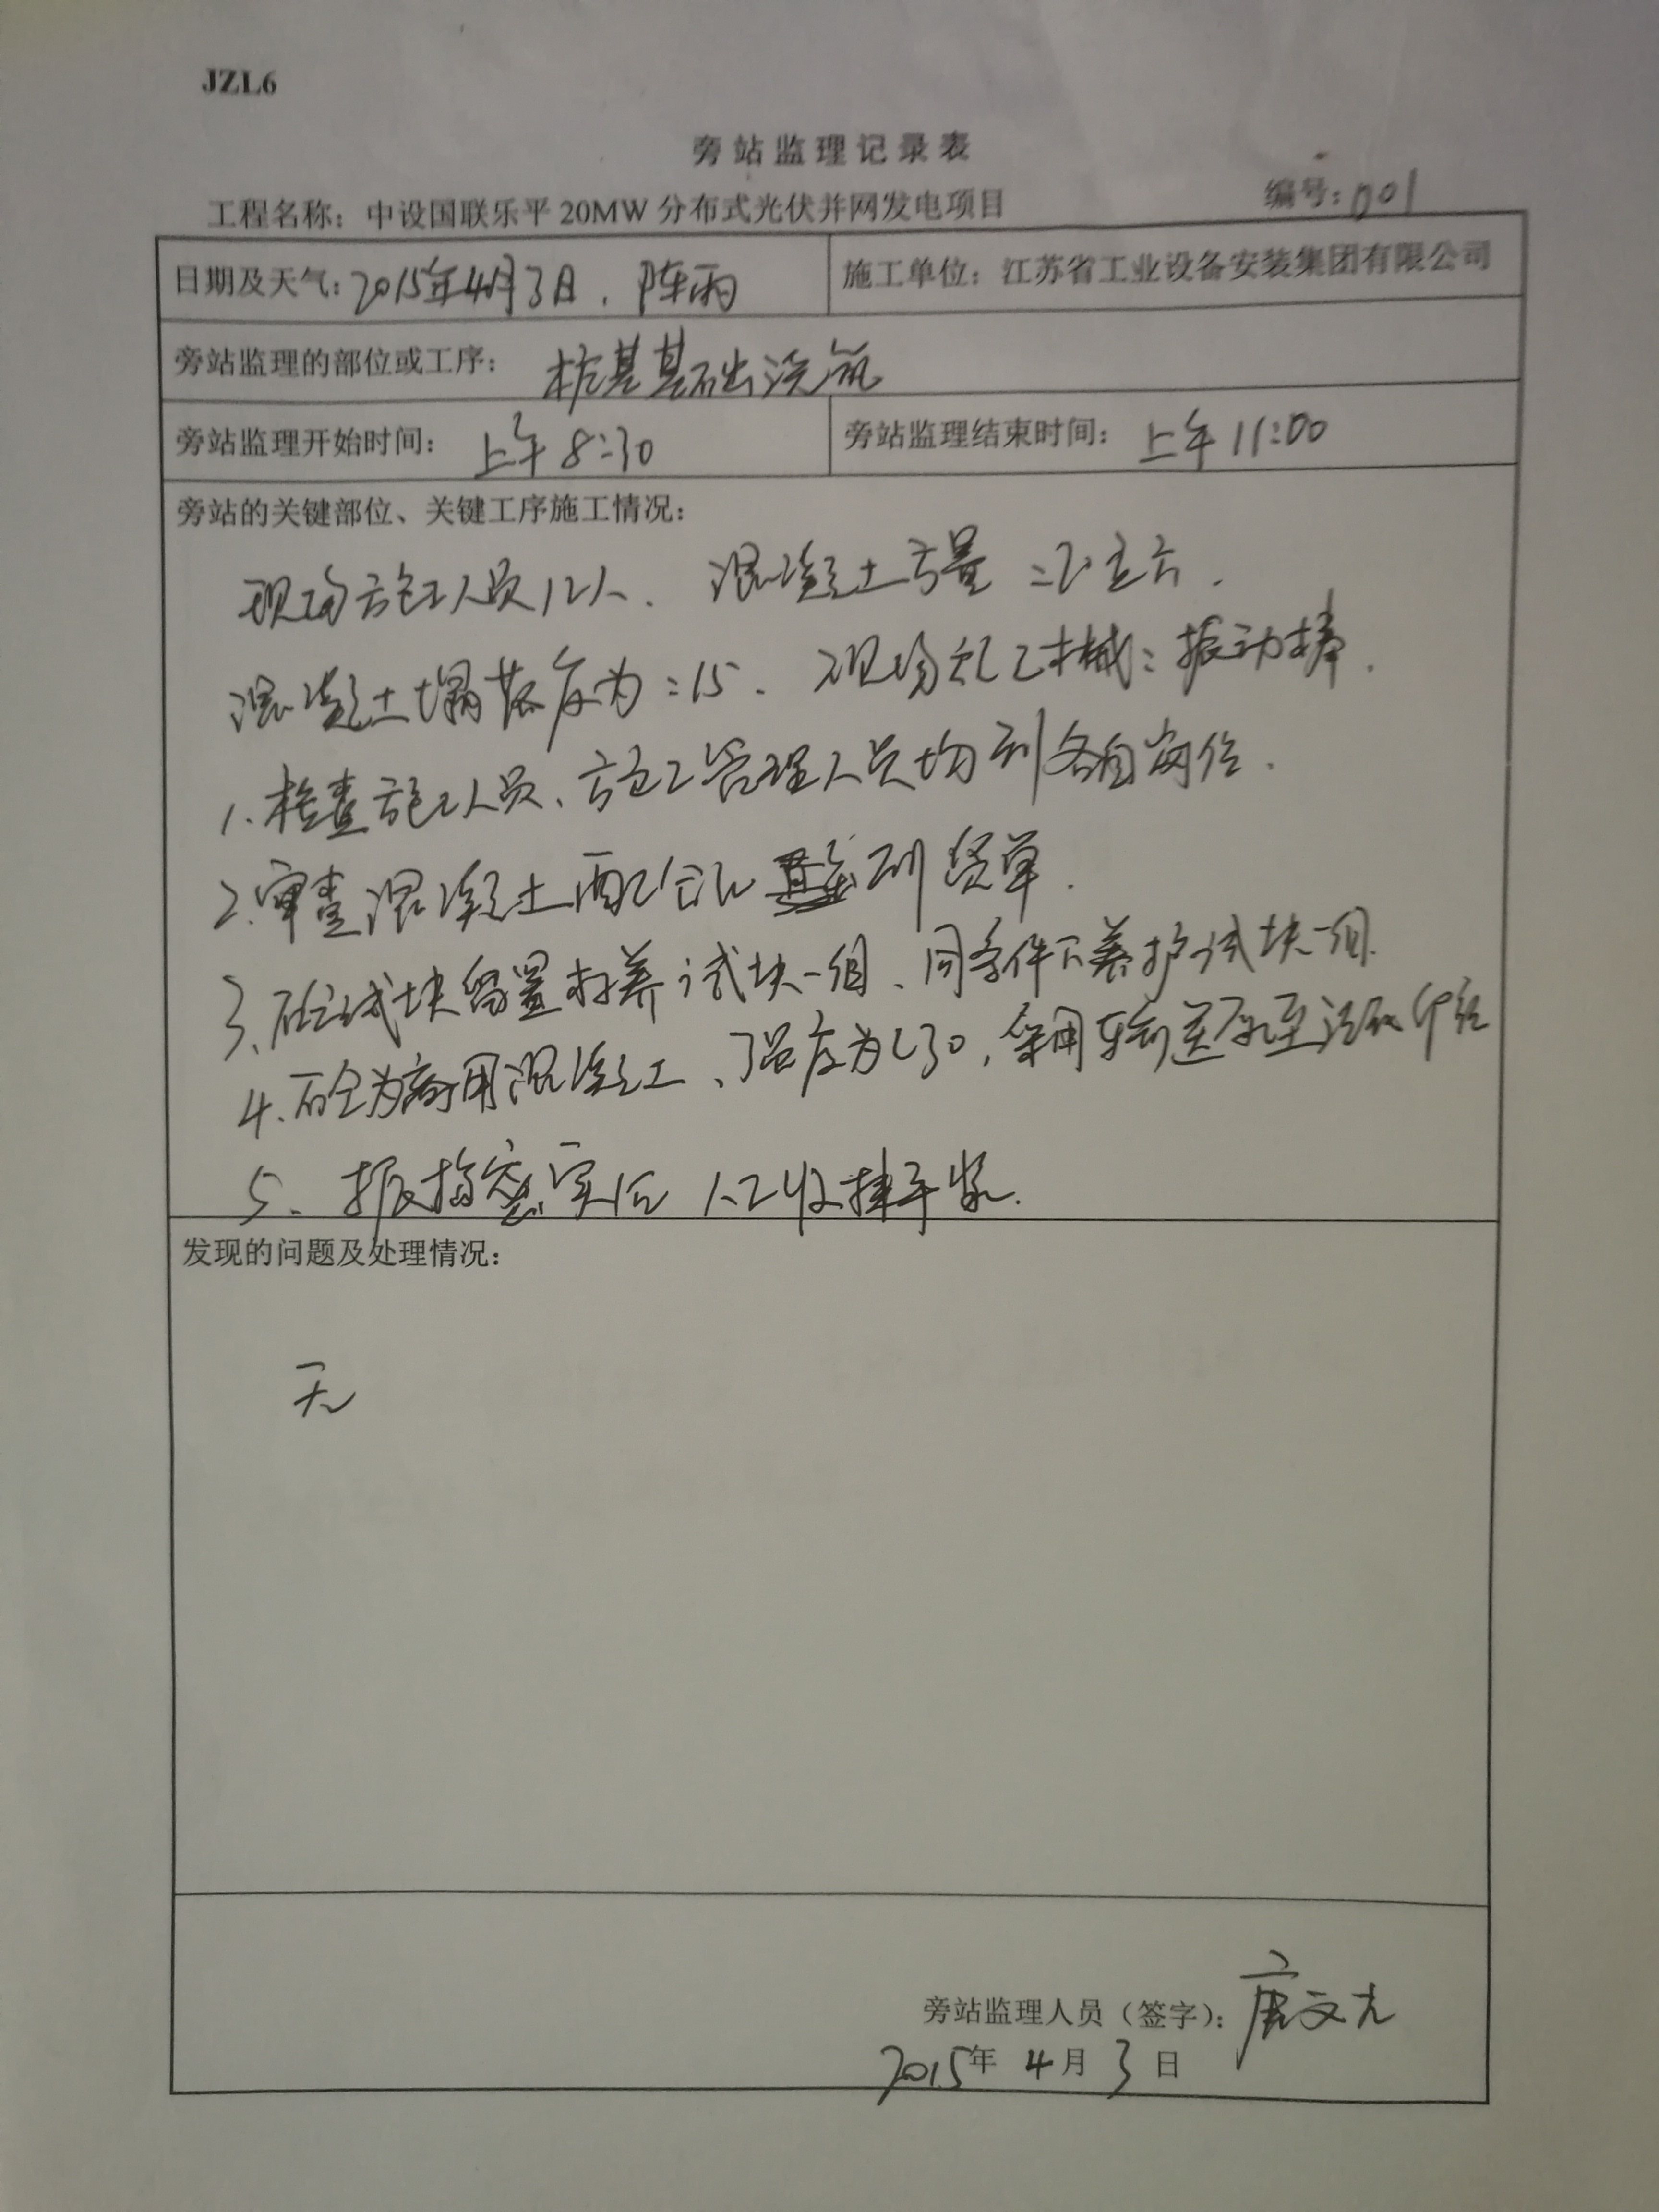 JZL6
旁站监理记录表
工程名称：中设国联乐平20MW分布式光伏并网发电项目 编号：001
日期及天气：2015年4月3日，阵雨 施工单位：江苏省工业设备安装集团有限公司
旁站监理的部位或工序：桩基基础浇筑
旁站监理开始时间：上午8:30 旁站监理结束时间：上午11:00
旁站的关键部位、关键工序施工情况：
现场施工人员12人. 混凝土方量 立方.
混凝土塌落度为:15. 现场施工机械:振动棒.
1.检查施工人员、施工管理人员均到各自岗位.
2.审查混凝土配合比 到货单.
3.砼试块留置标养试块一组、同条件下养护试块一组.
4.砼为商用混凝土、强度为C30,采用车输送砼至浇筑
5、振捣密实后 人工收 平浆.
发现的问题及处理情况：
无
旁站监理人员（签字）：唐文
2015年4月3日